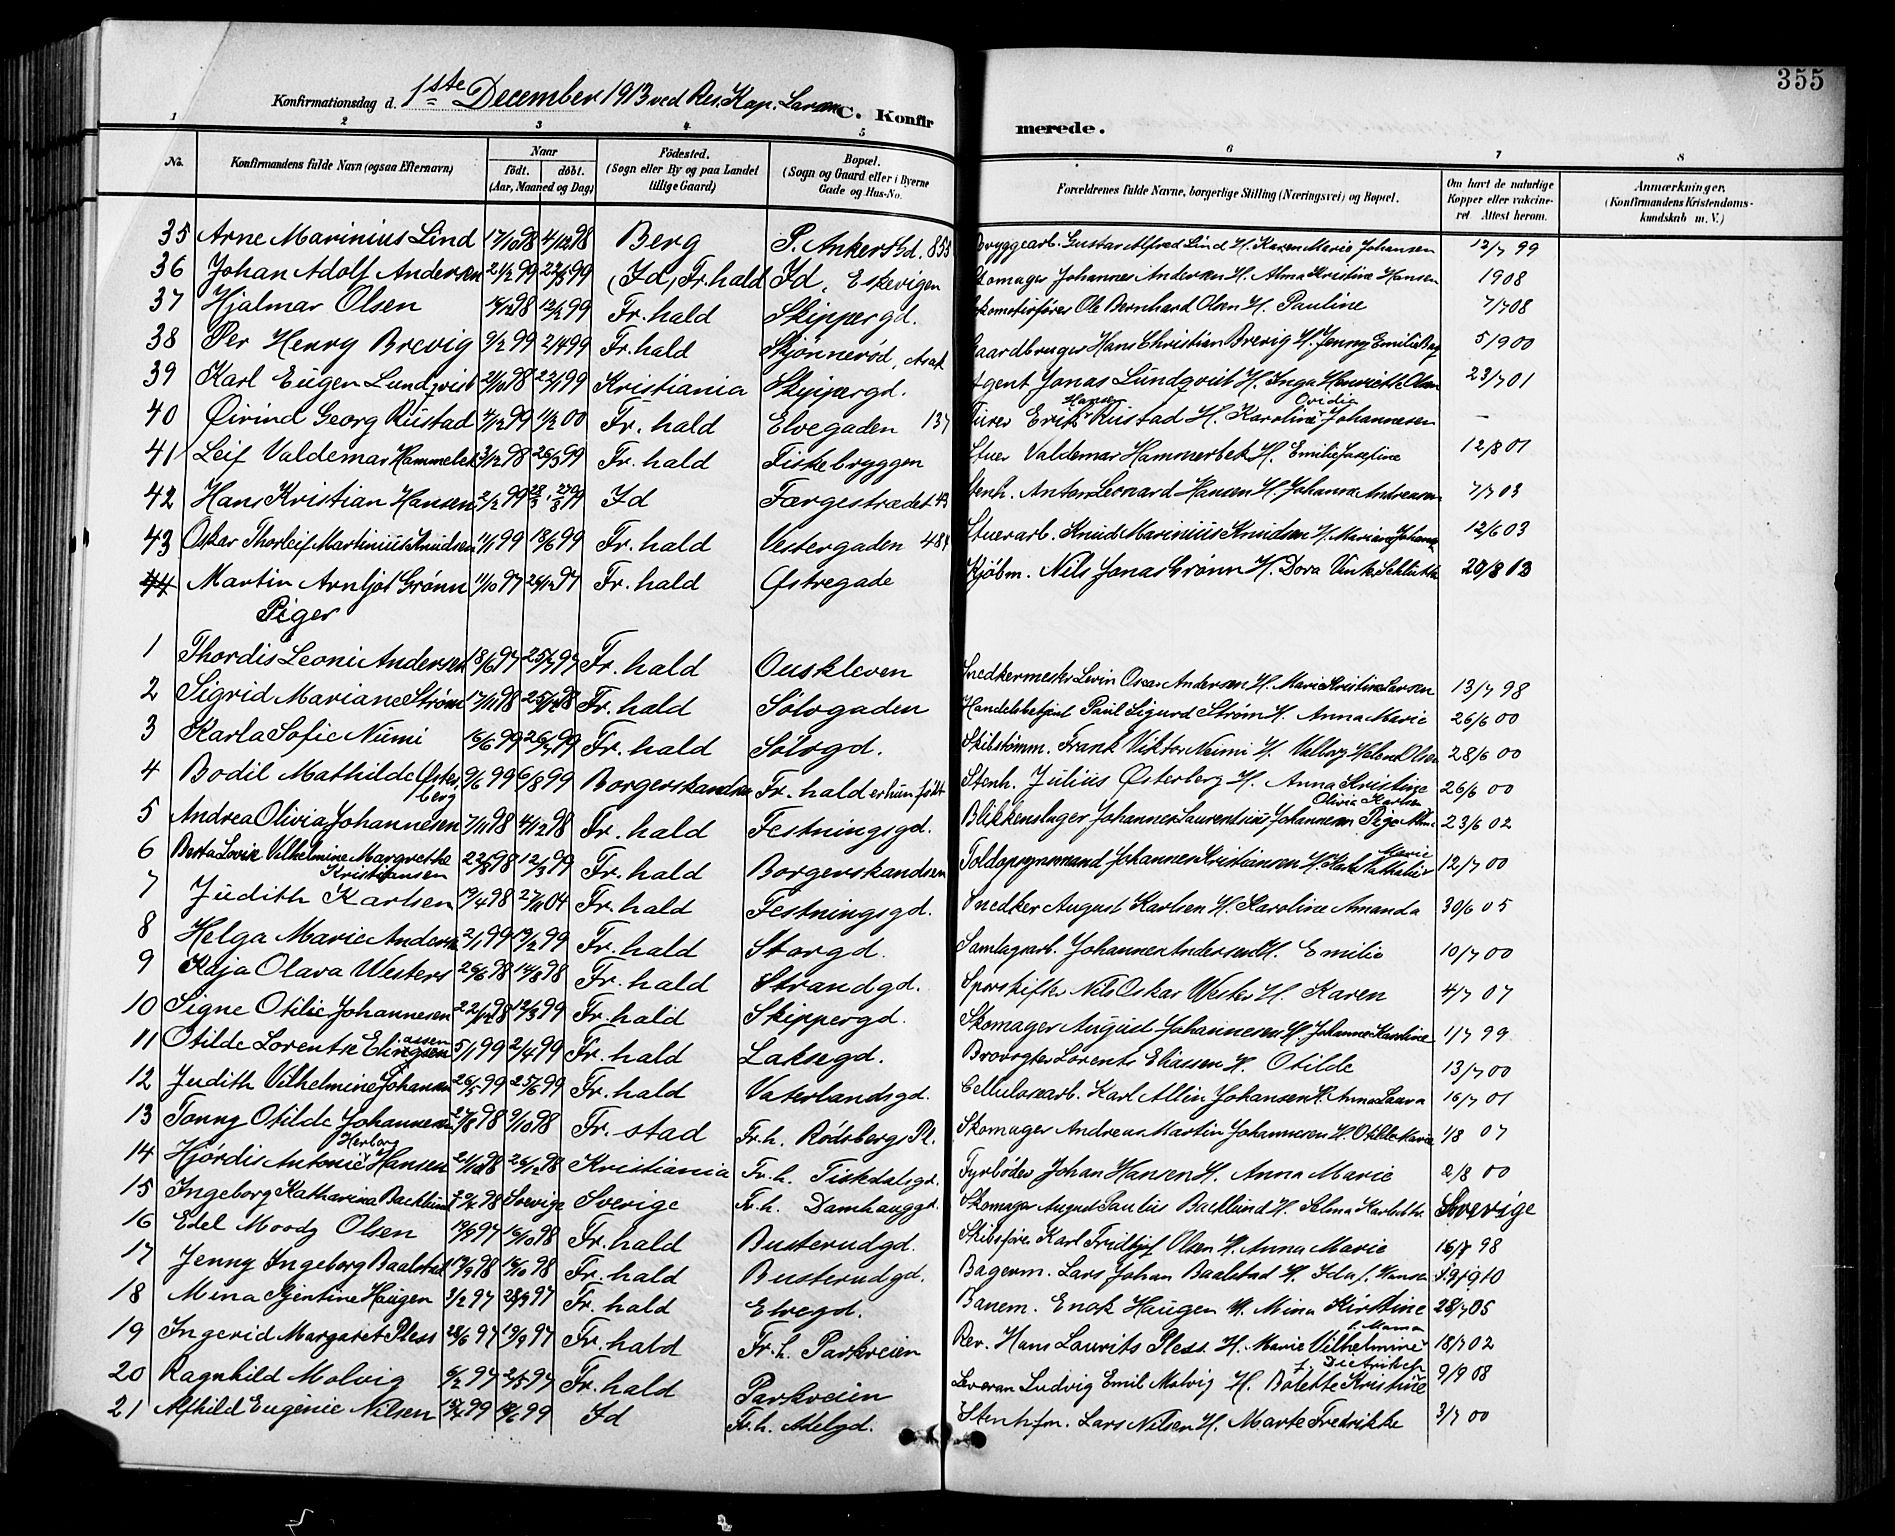 355
Konfirmationsdag d. 1ste December 1913 ved Res. Kap. Larsen C. Konfir merede.
1 2 3 4 5 6 7 8
No. Konfirmandens fulde Navn (ogsaa Efternavn) Naar født. døbt. (Aar, Maaned og Dag) Fødested. (Sogn eller By og paa Landet tillige Gaard) Bopæl. (Sogn og Gaard eller i Byerne Gade og Hus-No. Forældrenes fulde Navne, borgerlige Stilling (Næringsvei) og Bopæl. Om havt de naturlige Kopper eller vakcineret Attest herom. Anmærkninger. (Konfirmandens Kristendomskundskab m. V.)
35 Arne Marinius Lind 17/10 98 4/12 98 Berg P. Ankers Gd. Bryggearb. Gustav Alfred Lind H. Karen Marie Johansen 12/7 99
36 Johan Adolf Andersen 21/2 99 99 (Id) Fr. hald Id, Eskevigen Skomager Johannes Andersen H. Alma Kristine Hansen 1908
37 Hjalmar Olsen 98 12/2 99 Fr. hald Skippergd. Lokomotivfører Ole Bernhard Olsen H. Pauline 7/7 08
38 Per Henry Brevig 9/2 99 2/4 99 Fr. hald Skjønnerød, Asak Gaardbruger Hans Christian Brevig H. Jenny Emilie 5/9 00
39 Karl Eugen Lundqvist 21/10 98 22/1 99 Kristiania Skippergd. Agent Jonas Lundqvist H. Inga Henriette Olsen 23/7 01
40 Øivind Georg Rustad 4/12 99 1/2 00 Fr. hald Elvegaden 137 Hansen Erik Rustad H. Karoline Ovidia Johannesen –
41 Leif Valdemar Hammerbek 3/12 98 26/3 99 Fr. hald Fiskebryggen Stuer Valdemar Hammerbek H. Emilie Josefine 12/8 01
42 Hans Kristian Hansen 2/2 99 99 Id Færgestrædet 43 Stenh. Anton Leonard Hansen H. Johanne Andreasen 7/7 03
43 Oskar Thorleif Martinius Knudsen 11/1 99 18/6 99 Fr. hald Vestergaden Stuerarb. Knud Marinius Knudsen H. 12/6 03
44 Martin Arnljot Grønn 11/10 97 26/12 97 Fr. hald Østregade Kjøbm. Nils Jonas Grønn H. Dora 20/8 13
Piger
1 Thordis Leoni Andersen 18/6 97 25/7 97 Fr. hald Ouskleven Snedkermester Levin Oscar Andersen H. Marie Kristine Larsen 13/7 98
2 Sigrid Mariane Strøm 17/11 98 25/12 98 Fr. hald Sølvgaden Handelsbetjent Paul Sigurd Strøm H. Anna Marie 26/6 00
3 Karla Sofie Niimi 16/6 99 26/7 99 Fr. hald Sølvgd. Skibstømm. Frank Viktor Neimi H. Valborg Helene Olsen 28/6 00
4 Bodil Mathilde Østerberg 9/6 99 6/8 99 Borgerskandsen Fr. hald er hun født Stenh. Julius Østerberg H. Anna Kristine 26/6 00
5 Andrea Olivia Johannesen 7/11 98 4/12 98 Fr. hald Festningsgd. Blikkenslager Johannes Laurentsius Johannesen Pige Olivia Karlsen 23/6 02
6 Berta Lovise Vilhelmine Margrethe Kristiansen 22/8 98 12/3 99 Fr. hald Borgerskandsen Toldopsynsmand Johannes Kristiansen H. Marie 12/7 00
7 Judith Karlsen 19/4 98 27/11 04 Fr. hald Festningsgd. Snedker August Karlsen H. Karoline Amanda 30/6 05
8 Helga Marie Andersen 2/1 99 19/2 99 Fr. hald Storgd. Samlagsarb. Johannes Andersen H. Emilie 10/7 00
9 Kaja Olava Westers 26/6 98 14/8 98 Fr. hald Strandgd. Sporskifter Nils Oskar Wester H. Karen 4/7 07
10 Signe Otilie Johannesen 22/12 98 12/3 99 Fr. hald Skippergd. Skomager August Johannesen H. Johanne Karoline 1/7 99
11 Otilde Lorentse Eliassen 5/1 99 2/4 99 Fr. hald Laksegd. Brovogter Lorents Eliassen H. Otilde 13/7 00
12 Judith Vilhelmine Johansen 26/5 99 25/6 99 Fr. hald Vaterlandsgd. Cellulosearb. Karl Allin Johansen H. Anna Laura 16/7 01
13 Tonny Otilde Johannesen 27/8 98 9/10 98 Fr. stad Fr. h. Rødsbergs Pl. Skomager Andreas Martin Johannesen H. Otilde Marie 1/8 07
14 Hjørdis Antonie Herborg Hansen 21/10 98 26/12 98 Kristiania Fr. h. Fiskedalsgd. Fyrbøder Johan Hansen H. Anna Marie 2/8 00
15 Ingeborg Katharina Backlund 98 Sverige Sverige Fr. h. Damhauggd. Skomager August Paulus Backlund H. Selma Sverige
16 Edel Moody Olsen 19/9 97 16/10 98 Fr. hald Busterudgd. Skibsfører Karl Fridtjof Olsen H. Anna Marie 16/7 98
17 Jenny Ingeborg Baalstad 19/9 98 98 Fr. hald Busterudgd. Bagerm. Lars Johan Baalstad H. Ida f. Hansen
18 Mina Gjentine Haugen 3/2 97 28/3 97 Fr. hald Elvegd. Banem. Enok Haugen H. Mina Kirstine 28/7 05
19 Ingerid Margaret Pless 28/6 97 19/9 97 Fr. hald Fr. h. Parkveien Rev. Hans Laurits Pless H. Marie Vilhelmine 18/7 02
20 Ragnhild Molvig 6/2 97 2/5 97 Fr. hald Parkveien Ludvig Emil Molvig H. Bolette Kristine f. Dietrichs 9/9 08
21 Alfhild Eugenie Nilsen 99 99 Id Fr. h. Adelgd. Stenh. fm. Lars Nilsen H. Marte Fredrikke 3/7 00